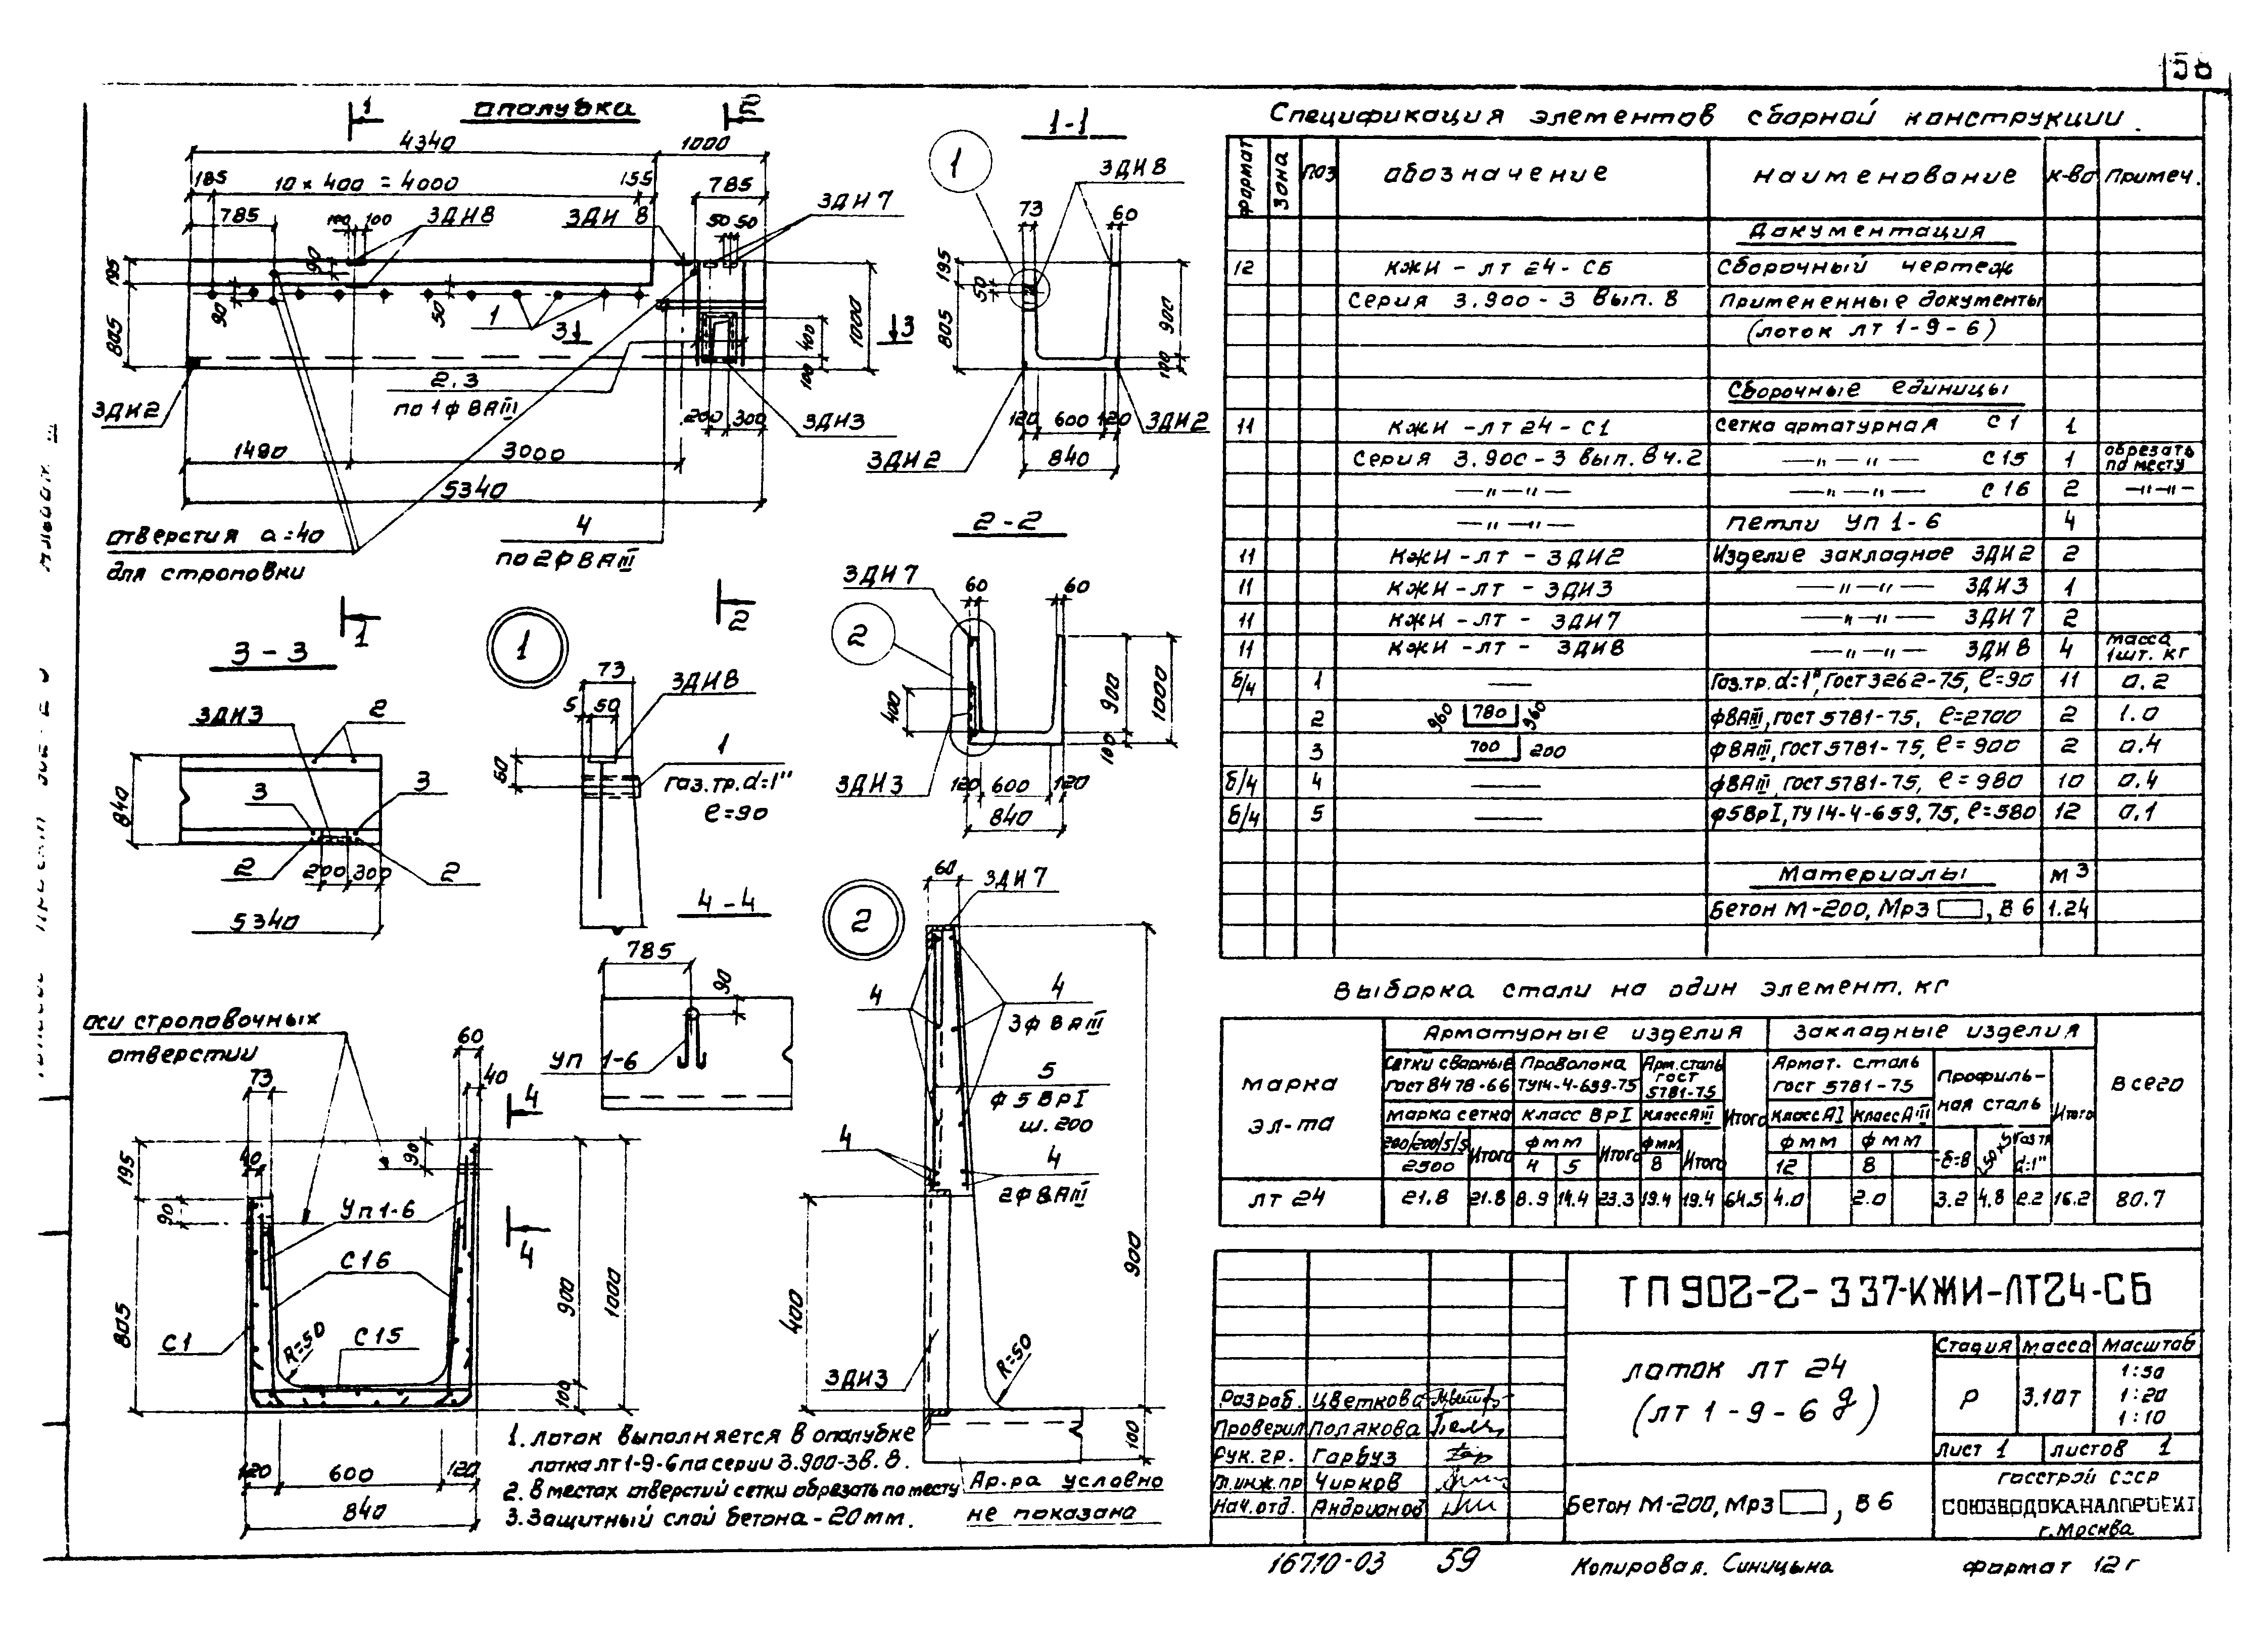 опалубка
1
2
4340
1000
185
10 × 400 = 4000
155
785
785
100
100
ЗДИ8
ЗДИ 8
50
50
ЗДИ 7
195
90
805
90
50
1
3
3
400
100
1000
2.3
по 1 ф 8АIII
200
300
ЗДИ2
ЗДИ3
1480
3000
5340
отверстия а=40
для строповки
4
по 2ф 8АIII
1
2
1-1
1
ЗДИ8
73
60
195
50
805
900
100
120
600
120
ЗДИ2
ЗДИ2
840
2-2
ЗДИ7
60
60
2
400
900
1000
100
ЗДИ3
120
600
120
840
3-3
ЗДИ3
2
840
3
3
2
200
300
2
5340
1
73
ЗДИ8
5
50
1
газ.тр.d=1"
ℓ=90
4-4
785
90
УП 1-6
2
60
ЗДИ7
4
4
3ф 8АIII
5
ф 5ВрI
ш.200
4
4
2ф 8АIII
900
400
R=50
ЗДИ3
100
Ар.ра условно
не показана
оси строповочных
отверстий
60
73
40
4
195
40
90
90
УП1-6
4
С16
805
900
1000
С1
С15
R=50
100
120
600
120
840
1. Лоток выполняется в опалубке
лотка ЛТ1-9-6 по серии 3.900-3 в. 8.
2. В местах отверстий сетки обрезать по месту
3. Защитный слой бетона - 20 мм.
Спецификация элементов сборной конструкции
формат Зона поз обозначение наименование к-во Примеч.
Документация
12 КЖИ - ЛТ 24-СБ Сборочный чертеж
Серия 3.900-3 вып. 8 Примененные документы
(лоток ЛТ 1-9-6)
Сборочные единицы
11 КЖИ - ЛТ 24-С1 Сетка арматурная С1 1
Серия 3.900-3 вып. 8 ч.2 —"—"— С15 1 обрезать по месту
—"—"— —"—"— С16 2 —"—"—
—"—"— петли УП 1-6 4
11 КЖИ-ЛТ - ЗДИ2 Изделие закладное ЗДИ2 2
11 КЖИ-ЛТ - ЗДИ3 —"—"— ЗДИ3 1
11 КЖИ-ЛТ - ЗДИ7 —"—"— ЗДИ7 2
11 КЖИ-ЛТ - ЗДИ8 —"—"— ЗДИ8 4 масса 1шт. кг
б/ч 1 — Газ.тр.d=1", Гост 3262-75, ℓ=90 11 0.2
2 960 780 960 ф8АIII, гост 5781-75, ℓ=2700 2 1.0
3 700 200 ф8АIII, гост 5781-75, ℓ=900 2 0.4
б/ч 4 — ф8АIII, гост 5781-75, ℓ=980 10 0.4
б/ч 5 — ф5ВрI, ТУ 14-4-659.75, ℓ=580 12 0.1
Материалы м3
Бетон М-200, Мрз , В 6 1.24
Выборка стали на один элемент, кг
Марка эл-та
Арматурные изделия
Закладные изделия
Всего
Сетки сварные гост 8478-66
Проволока ТУ14-4-659-75
Арм.сталь гост 5781-75
Итого
Армат. сталь гост 5781-75
Профильная сталь
Итого
марка сетка класс ВрI класс АIII класс АI класс АIII
200/200/5/5 Итого фмм Итого фмм Итого фмм фмм δ=8 газ тр d=1"
2500 4 5 8 12 8
ЛТ 24 21.8 21.8 8.9 14.4 23.3 19.4 19.4 64.5 4.0 2.0 3.2 4.8 2.2 16.2 80.7
ТП 902-2-337-КЖИ-ЛТ24-СБ
лоток ЛТ 24
(ЛТ 1-9-6 д)
Стадия масса Масштаб
Р 3.10т 1:50
1:20
1:10
Лист 1 листов 1
Разраб. Цветкова
Проверил Полякова
Рук. гр. Гарбуз
Гл.инж.пр Чирков
Нач.отд. Андрианов
Бетон М-200, Мрз , В 6
ГОССТРОЙ СССР
СОЮЗВОДОКАНАЛПРОЕКТ
г. Москва
16710-03 59
Копировал. Синицына
Формат 12 г